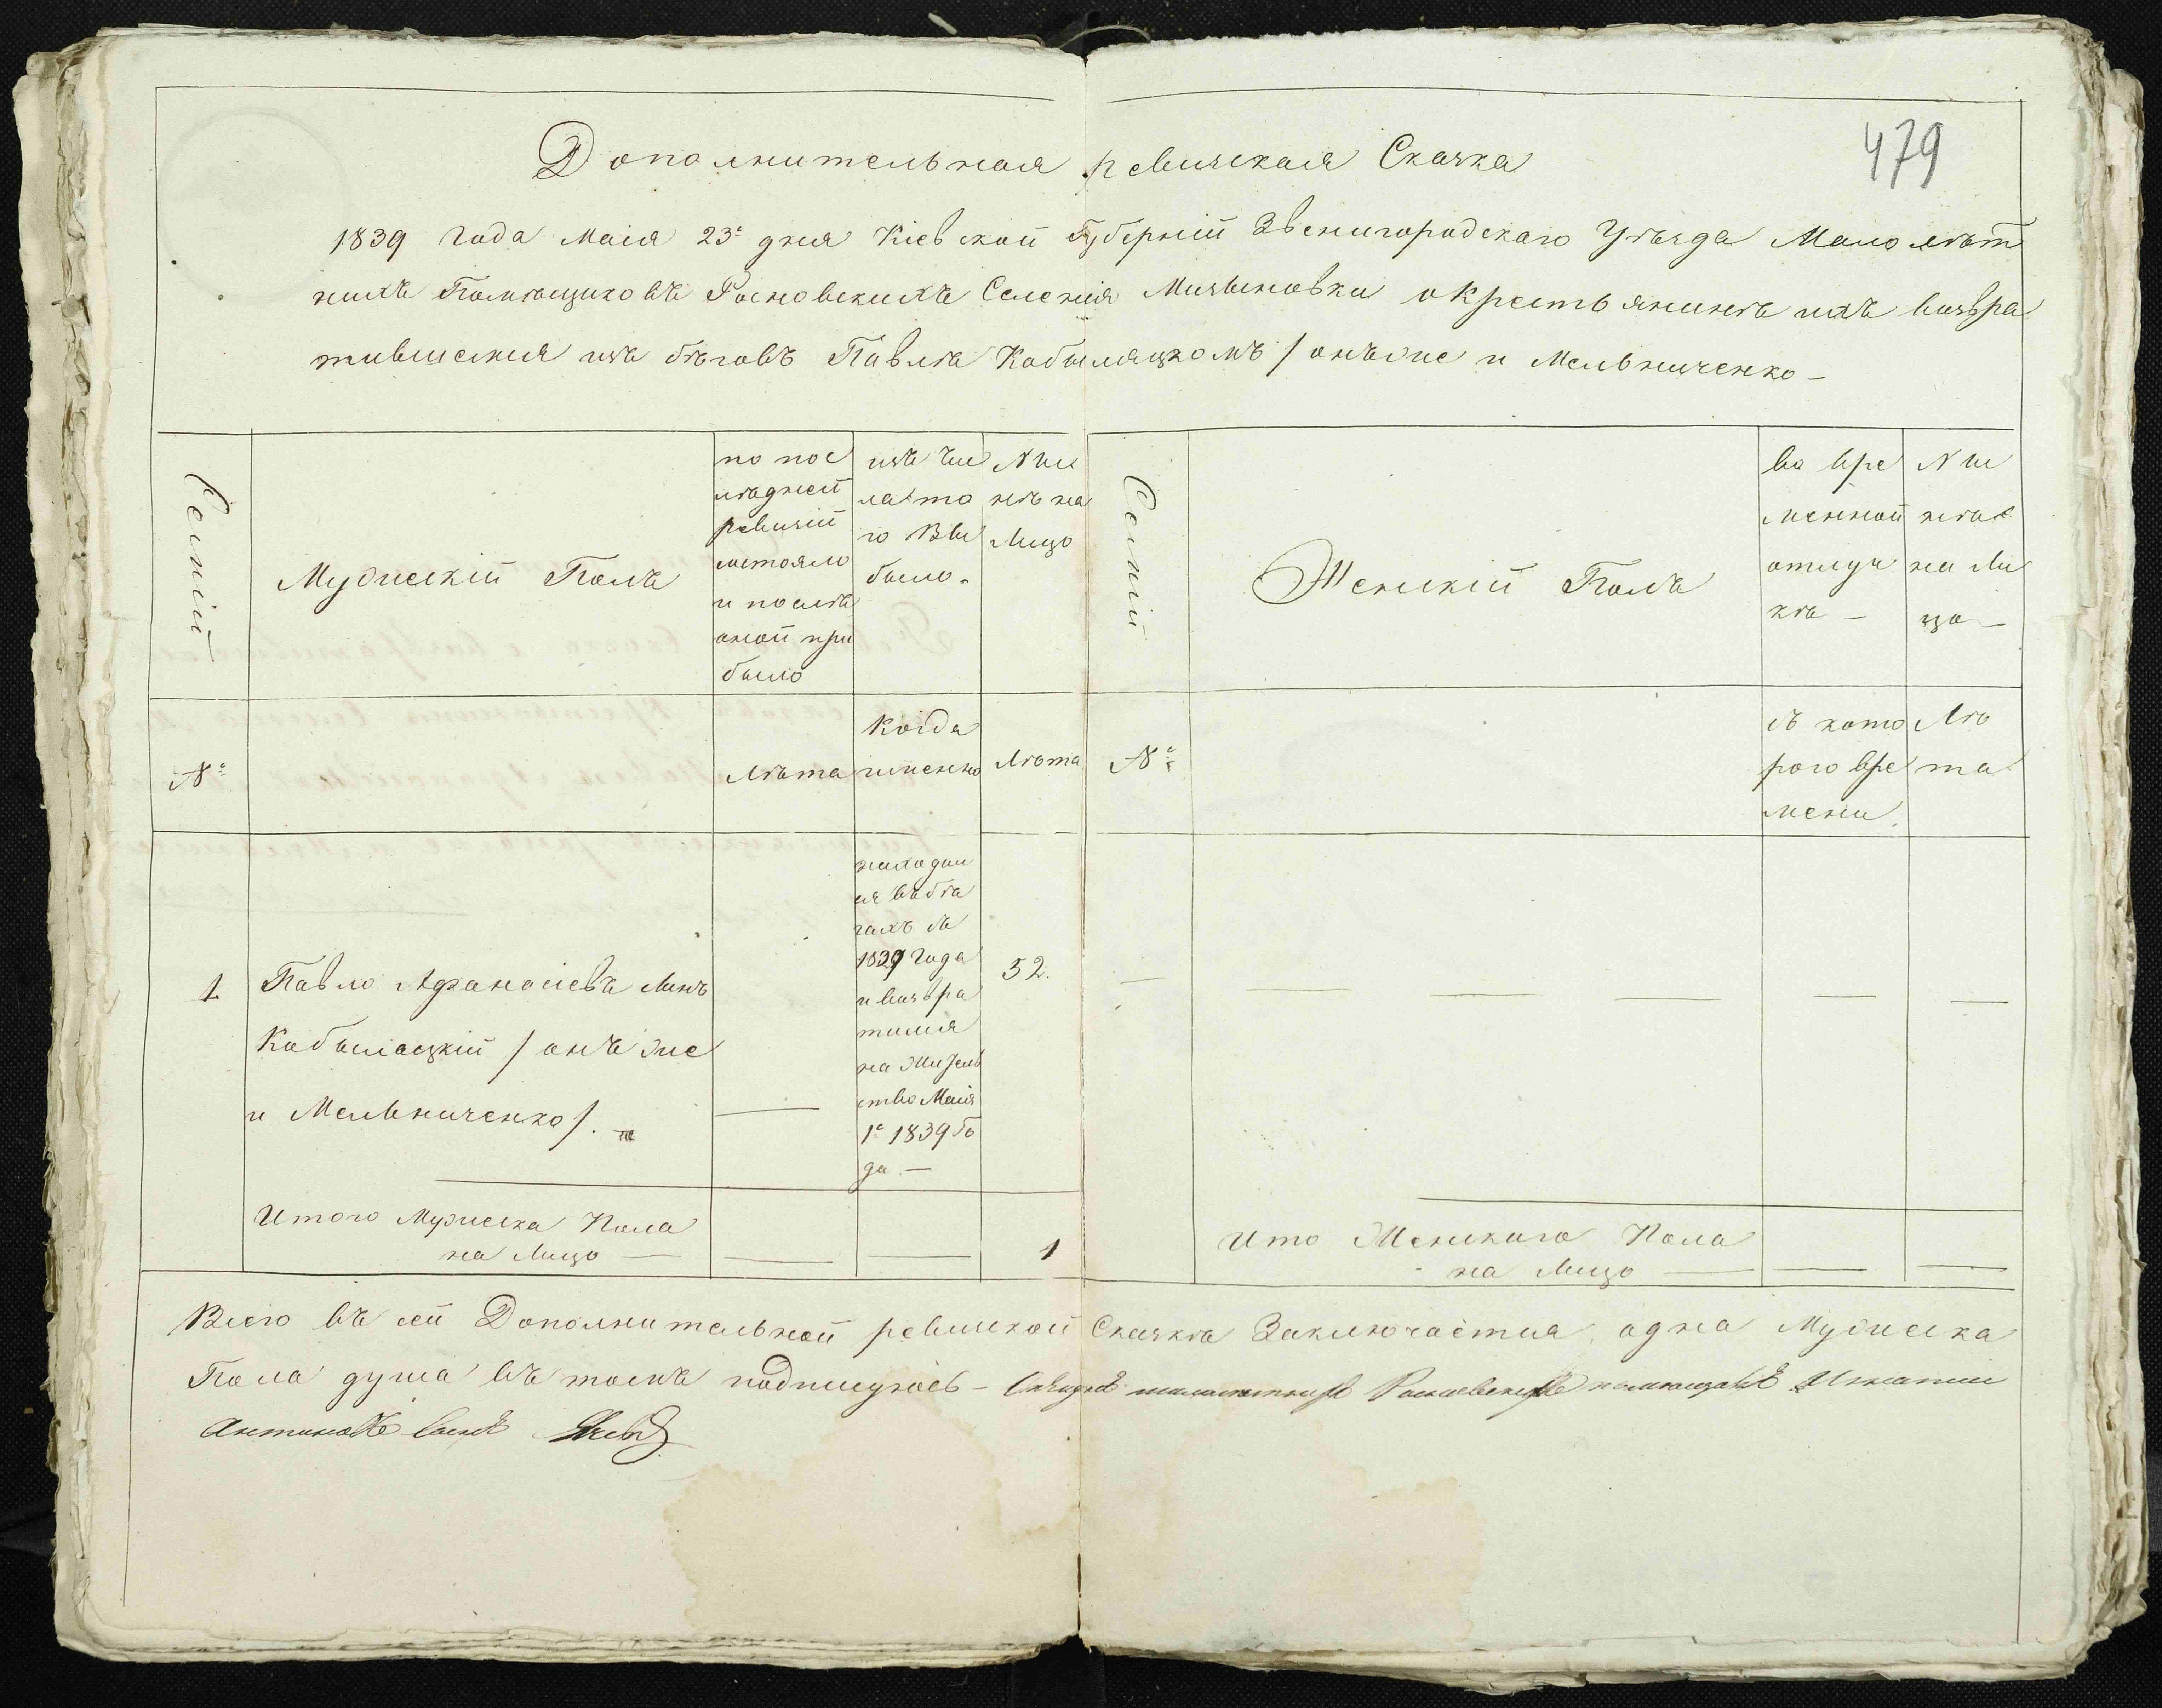 479
Дополнительная ревизская Сказка
1839 года Маія 23го дня Кіевской Губерніи Звенигородскаго Уѣзда Малолѣт
нихъ Помѣщиковъ Селенія окрестьянинѣ ихъ возвра
тившемся изъ бѣговъ Павлѣ Кобыляцкомъ /онъ же и Мельниченко –
Семіи
Мужескій Полъ
по пос
лѣдней
ревизіи
состояло
и послѣ
оной при
было
изъ чис
ла то
го Вы
было.
Ны
нѣ на
Лицо
Семіи
Женскій Полъ
во вре
менной
отлуч
кѣ –
Ны
нѣ
на Ли
цо –
№
Лѣта
Когда
именно
Лѣта
№
съ кото
рого вре
мени.
Лѣ
та
1.
Павло Афанасіевъ сынъ
Кобыляцкій /онъ же
и Мельниченко/.
находил
ся въ бѣ
гахъ съ
1839 года
и возвра
тился
на Жител
ство Маія
1го 1839 Го
да. –
52.
Итого Мужеска Пола
на Лицо
1
Ито Женскаго Пола
на Лицо
Всего въ сей Дополнительной ревизской Сказкѣ Заключаетца одна Мужеска
Пола душа въ томъ подписуюсь –